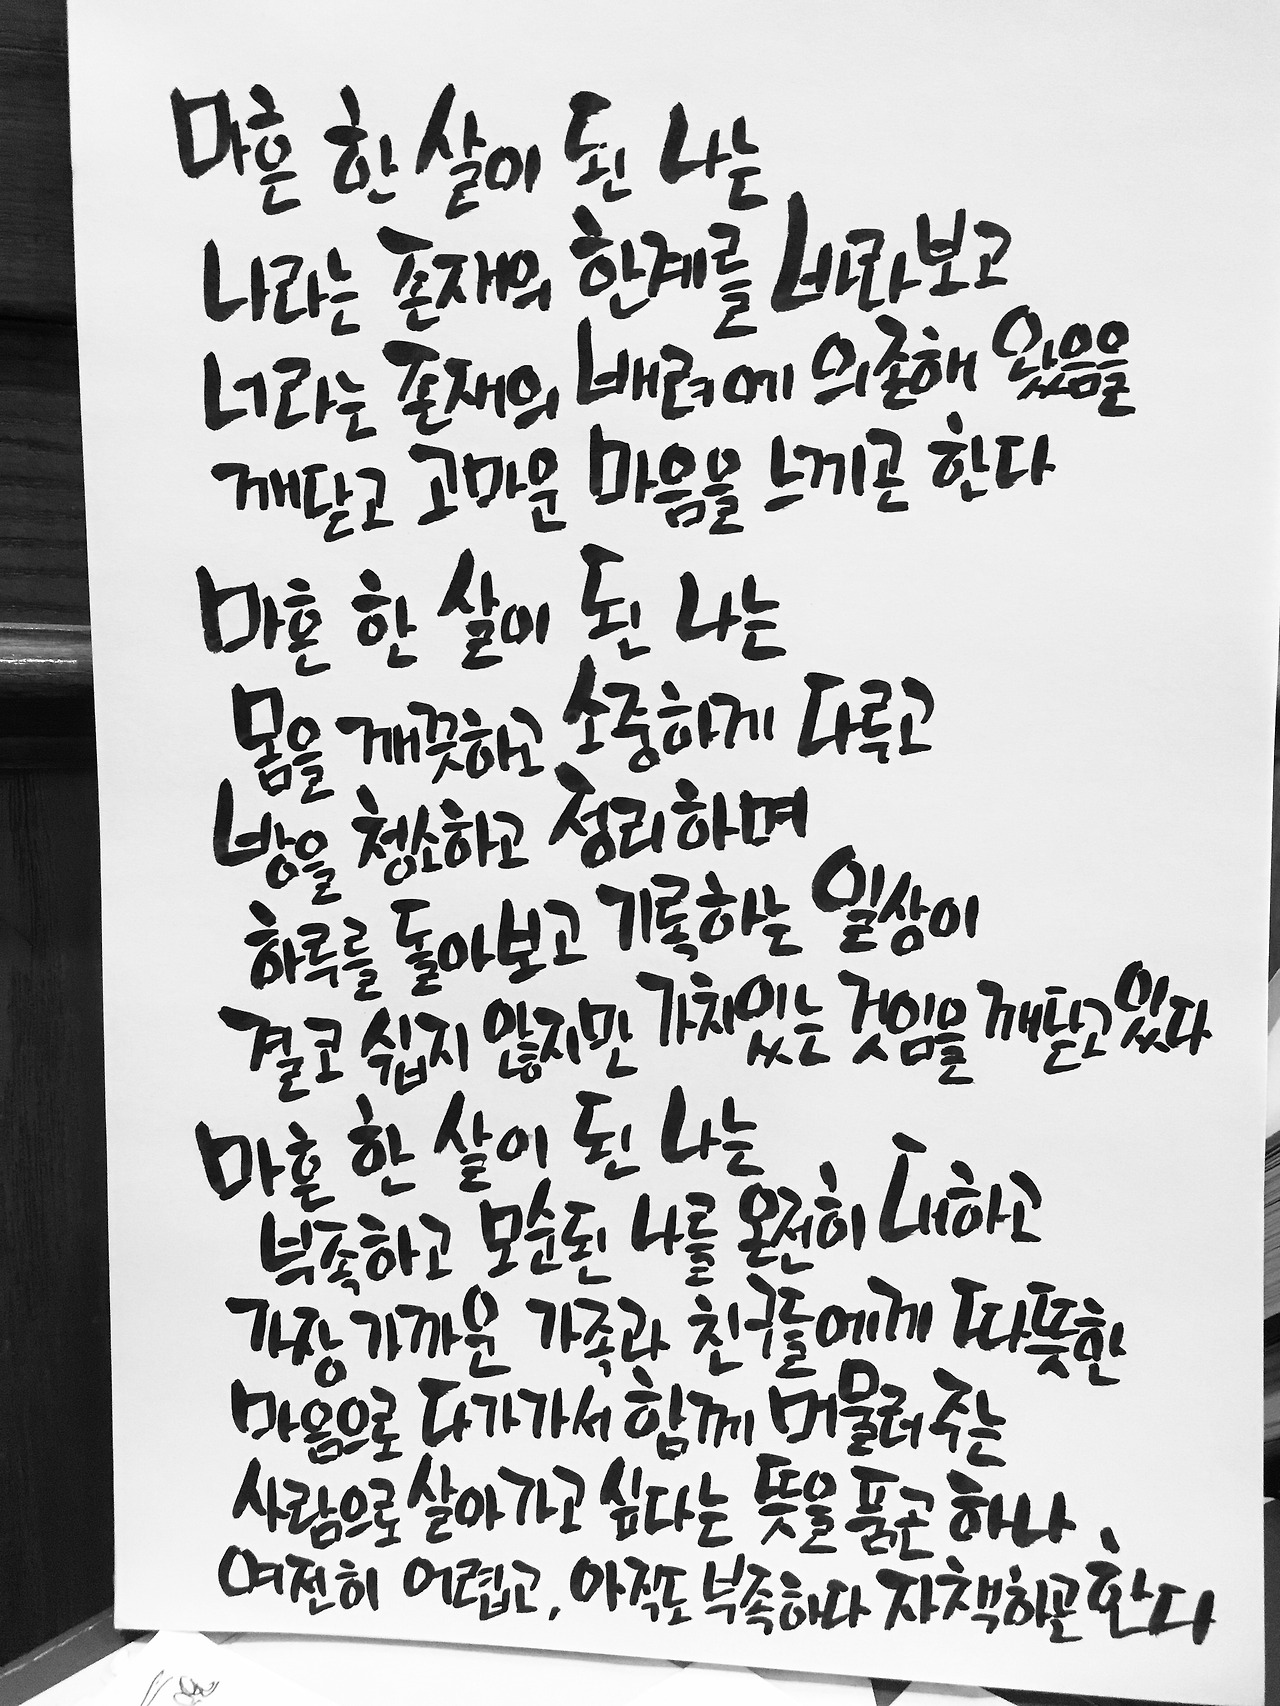 마흔 한 살이 된 나는
나라는 존재의 한계를 바라보고
너라는 존재의 배려에 의존해 왔음을
깨닫고 고마운 마음을 느끼곤 한다
마흔 한 살이 된 나는
몸을 깨끗하고 소중하게 다루고
방을 청소하고 정리하며
하루를 돌아보고 기록하는 일상이
결코 쉽지 않지만 가치있는 것임을 깨닫고 있다
마흔 한 살이 된 나는
부족하고 모순된 나를 온전히 대하고
가장 가까운 가족과 친구들에게 따뜻한
마음으로 다가가서 함께 머물러 주는
사람으로 살아가고 싶다는 뜻을 품곤 하나,
여전히 어렵고, 아직도 부족하다 자책하곤 한다